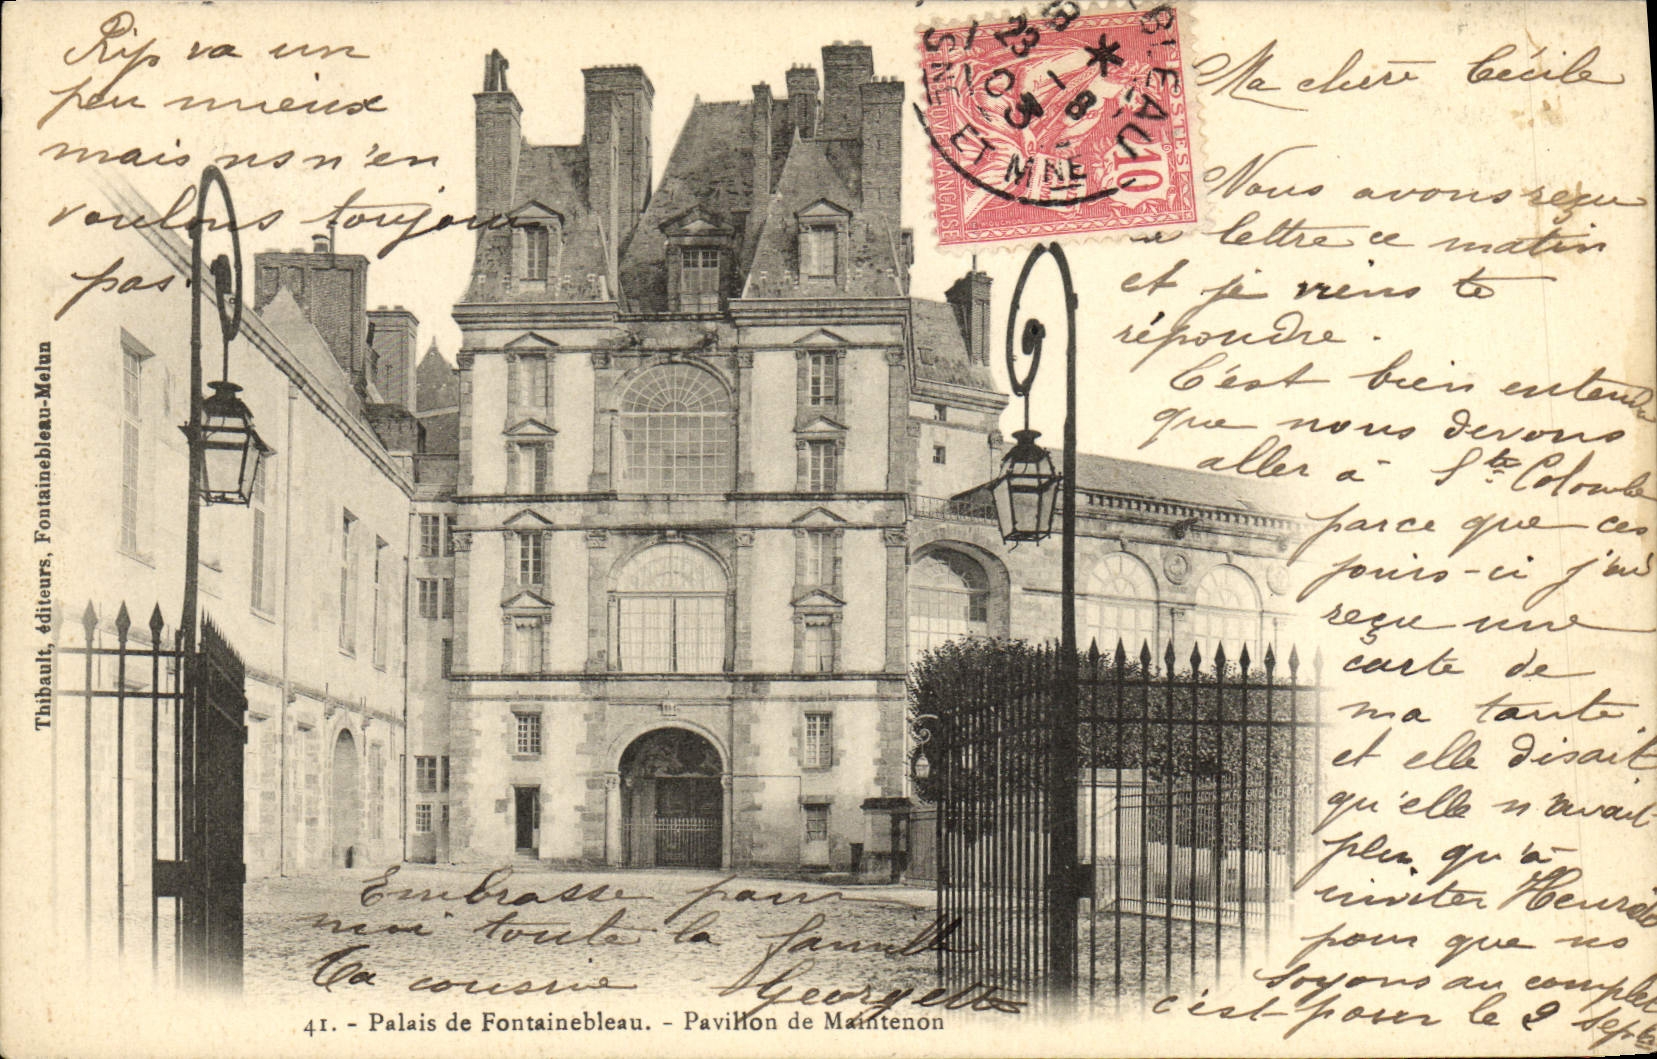 Ma chère Cécile
Nous avons reçu
ta lettre ce matin
et je viens te
répondre.
C'est bien entendu
que nous devons
aller à Ste Colombe
parce que ces
jours-ci j'ai
reçu une
carte de
ma tante,
et elle disait
qu'elle n'avait
plus qu'à
inviter
pour que ns
soyons au complet
c'est pour le 2 Septe
Rip va un
peu mieux
mais ns n'en
voulons toujours
pas.
Embrasse pour
moi toute la famille
Ta cousine Georgette
41. - Palais de Fontainebleau. - Pavillon de Maintenon
Thibault, éditeurs, Fontainebleau-Melun
BLEAU
SNE ET MNE
23 -8
03
POSTES
10